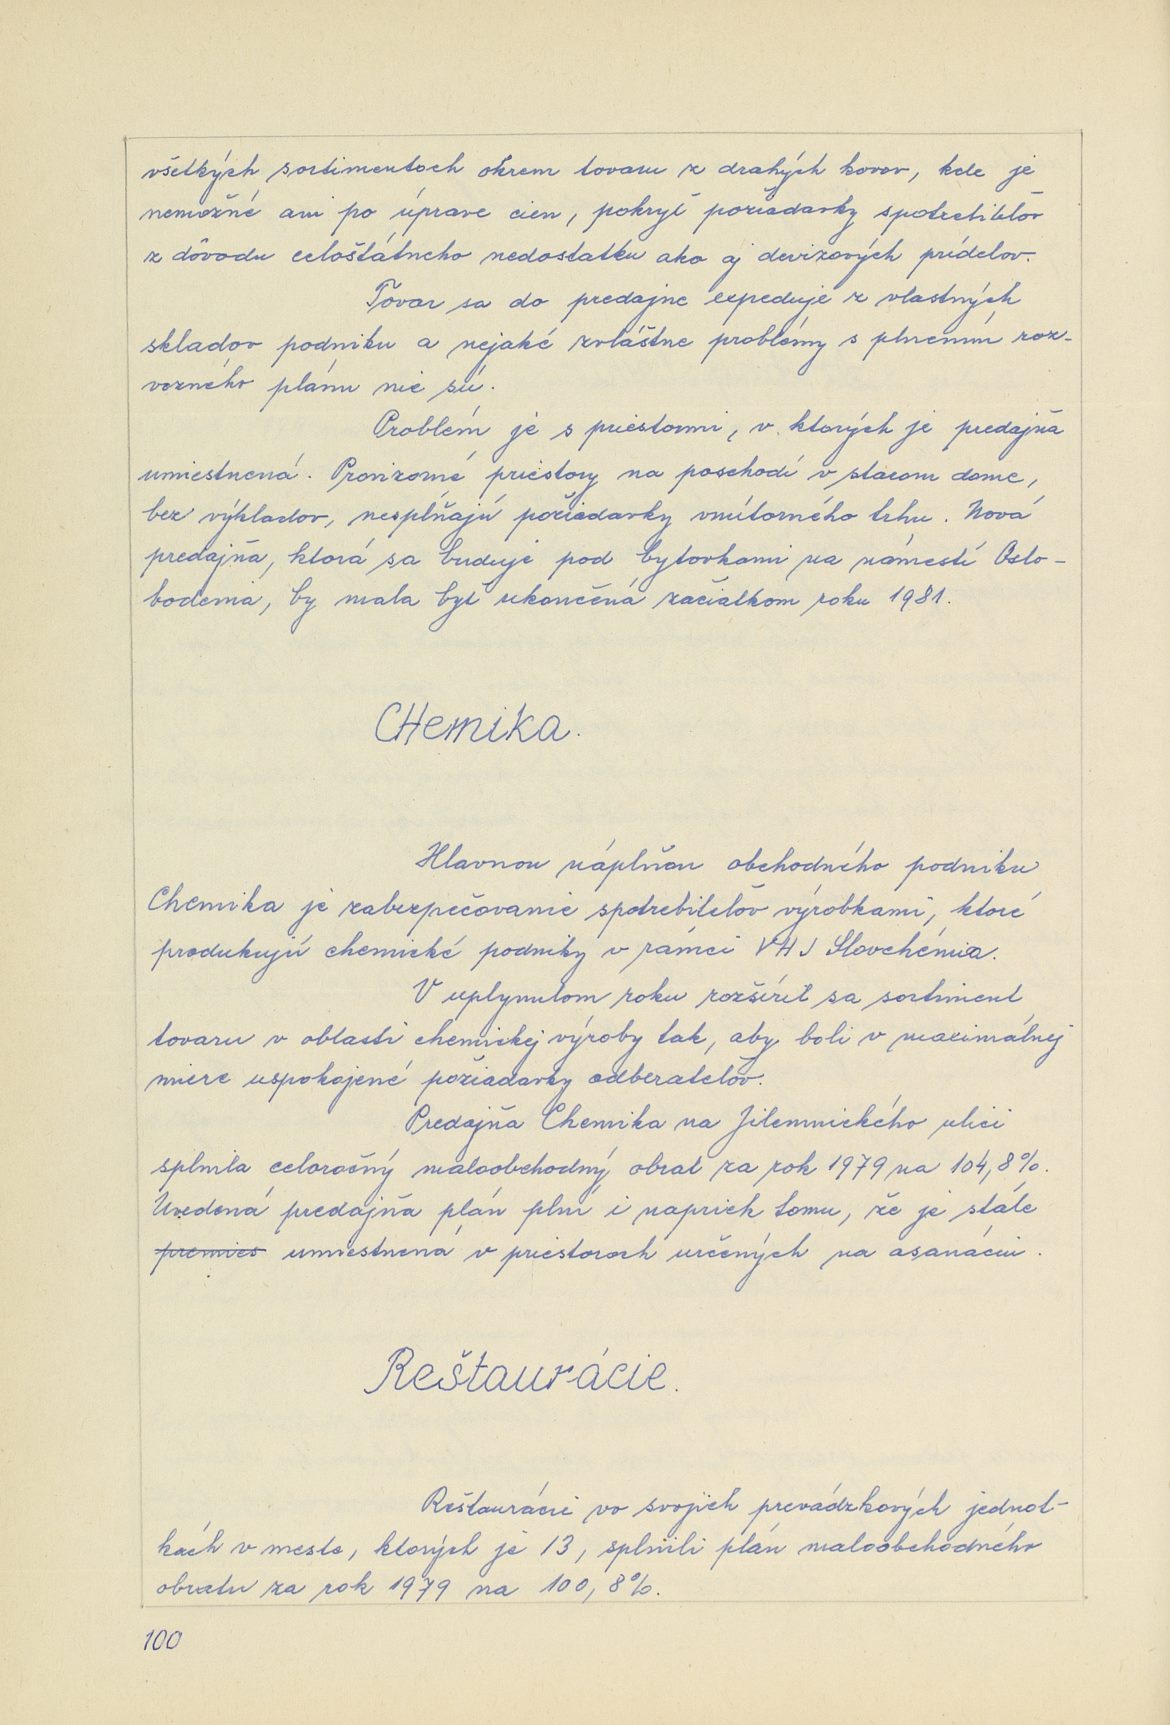 všetkých sortimentoch okrem tovaru z drahých kovov, kde je
nemožné ani po úprave cien, pokryť požiadavky spotrebiteľov
z dôvodu celoštátneho nedostatku ako aj devizových prídelov.
Tovar sa do predajne expeduje z vlastných
skladov podniku a nejaké zvláštne problémy s plnením roz-
vozného plánu nie sú.
Problém je s priestormi, v ktorých je predajňa
umiestnená. Provizorné priestory na poschodí v starom dome,
bez výkladov, nesplňajú požiadavky vnútorného trhu. Nová
predajňa, ktorá sa buduje pod bytovkami na námestí Oslo-
bodenia, by mala byť ukončená začiatkom roku 1981.
CHemika.
Hlavnou náplňou obchodného podniku
Chemika je zabezpečovanie spotrebiteľov výrobkami, ktoré
produkujú chemické podniky v rámci VHJ Slovchémia.
V uplynulom roku rozšíril sa sortiment
tovaru v oblasti chemickej výroby tak, aby boli v maximálnej
miere uspokojené požiadavky odberateľov.
Predajňa Chemika na Jilemnického ulici
splnila celoročný maloobchodný obrat za rok 1979 na 104,8%.
Uvedená predajňa plán plní i napriek tomu, že je stále
premies umiestnená v priestoroch určených na asanáciu.
Reštaurácie.
Reštaurácie vo svojich prevádzkových jednot-
kách v meste, ktorých je 13, splnili plán maloobchodného
obratu za rok 1979 na 100,8%.
100